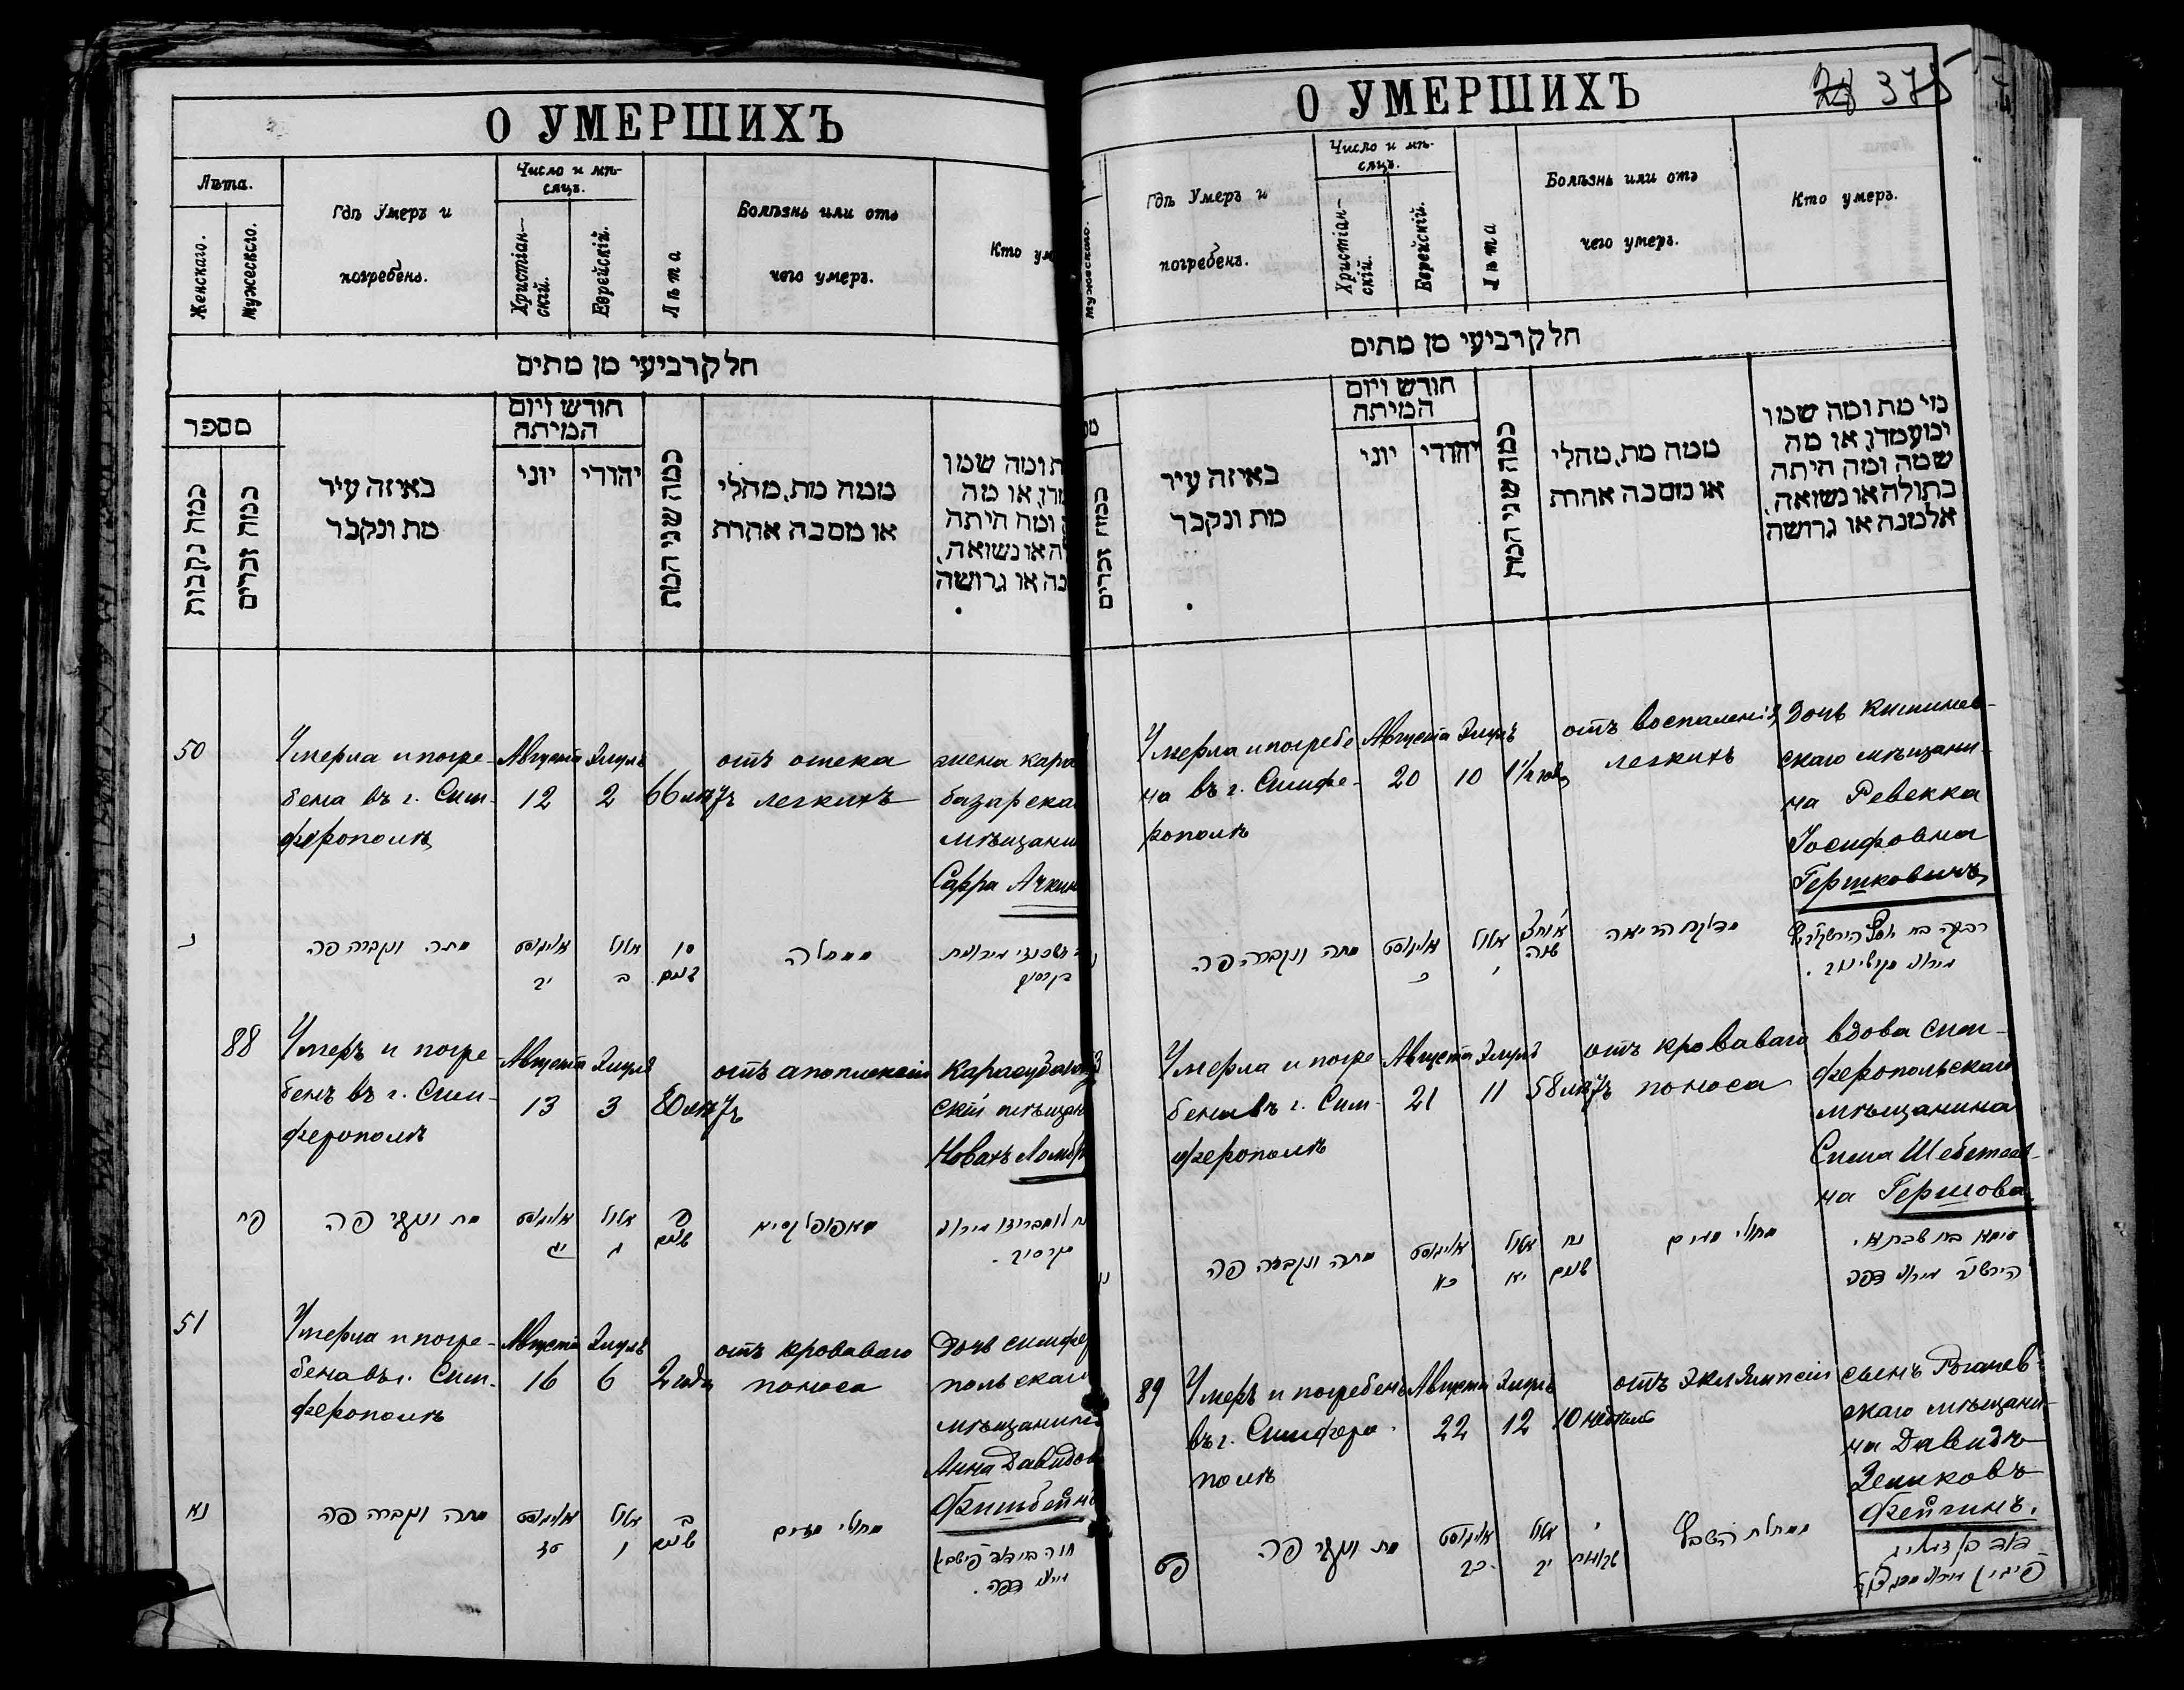 О УМЕРШИХЪ
Лѣта.
Женскаго.
Мужескаго.
Гдѣ Умеръ и
погребенъ.
Число и мѣ-
сяцъ.
Христіан-
скій.
Еврейскій.
Лѣта
Болѣзнь или отъ
чего умеръ.
Кто ум
חלק רביעי מן מתים
מספר
כמה נקבות
כמה זכרים
באיזה עיר
מת ונקבר
חודש ויום
המיתה
יוני
יהודי
כמה שני המת
ממה מת, מחלי
או מסבה אחרת
ת ומה שמו
מדו, או מה
ומה היתה
לה או נשואה,
נה או גרושה
50
Умерла и погре-
бена въ г. Сим-
ферополѣ
Августа
12
Элулъ
2
66 лѣтъ
отъ отека
легкихъ
жена кара
базарска
мѣщани
Сарра Ачкин
נ
מתה ונקברה פה
אויגוסט
יב
אלול
ב
סו
שנים
ממחלה
88
Умеръ и погре
бенъ въ г. Сим-
ферополѣ
Августа
13
Элулъ
3
80 лѣтъ
отъ апоплексіи
Карасубазар
скій мѣщан
Новахъ Ломбр
פח
מת ונקבר פה
אויגוסט
יג
אלול
ג
פ
שנים
מאפופלקסיא
51
Умерла и погре-
бена въ г. Сим-
ферополѣ
Августа
16
Элулъ
6
2 года
отъ кроваваго
поноса
Дочь симфер
польскаг
мѣщанина
Анна Давидов
Фишбейнъ
נא
מתה ונקברה פה
אויגוסט
טז
אלול
ו
ב
שנים
מחולי מעים
О УМЕРШИХЪ
28 375
Мужескаго.
Гдѣ Умеръ и
погребенъ.
Число и мѣ-
сяцъ.
Христіан-
скій.
Еврейскій.
Лѣта
Болѣзнь или отъ
чего умеръ.
Кто умеръ.
חלק רביעי מן מתים
כמה זכרים
באיזה עיר
מת ונקבר
חודש ויום
המיתה
יוני
יהודי
כמה שני המת
ממה מת, מחלי
או מסבה אחרת
מי מת ומה שמו
ומעמדו, או מה
שמה ומה היתה
בתולה או נשואה,
אלמנה או גרושה
Умерла и погребе
на въ г. Симфе-
рополѣ
Августа
20
Элулъ
10
1½ года
отъ воспаленія
легкихъ
Дочь Кишинев-
скаго мѣщани-
на Ревекка
Іосифовна
Гершковичъ
מתה ונקברה פה
אויגוסט
כ
אלול
י
מדלקת הריאה
רבקה בת יוסף הירשקוביץ
Умерла и погре
бена въ г. Сим-
ферополѣ
Августа
21
Элулъ
11
58 лѣтъ
отъ кроваваго
поноса
вдова сим-
феропольскаго
мѣщанина
Сима Шебетеев-
на Гершова
מתה ונקברה פה
אויגוסט
כא
אלול
יא
נח
שנים
מחולי מעים
סימא בת שבתאי
89
Умеръ и погребенъ
въ г. Симферо-
полѣ
Августа
22
Элулъ
12
10 недѣль
отъ эклямпсіи
сынъ Рогачев-
скаго мѣщани-
на Давидъ
Земиковъ
Фейгинъ.
פט
מת ונקבר פה
אויגוסט
כב
אלול
יב
י
שבועות
ממחלת השבץ